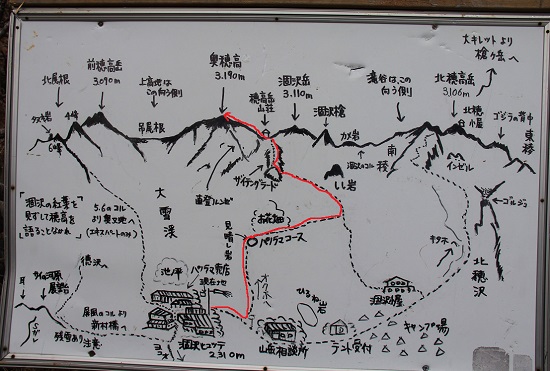 大キレットより
槍ヶ岳へ
北尾根
前穂高岳
3,090m
上高地は
この向う側
奥穂高
3,190m
穂高岳
山荘
涸沢岳
3,110m
涸沢槍
滝谷はこの
向う側
北穂高岳
3,106m
北穂
小屋
ゴジラの背中
東稜
4峰
6峰
吊尾根
カメ岩
涸沢のコル
南
稜
インゼル
ザイテングラード
直登ルンゼ
しし岩
ゴルジュ
「涸沢の紅葉を
見ずして穂高を
語ることなかれ」
5.6のコル
より奥又池へ
(エキスパートのみ)
大
雪
渓
お花畑
見晴し岩
パノラマコース
北
穂
沢
横沢へ
池ノ平
パノラマ売店
現在地
屏風のコルより
新村橋へ
残雪あり注意
涸沢ヒュッテ
2,310m
ひるね岩
山岳相談所
涸沢小屋
テント受付
キャンプ場